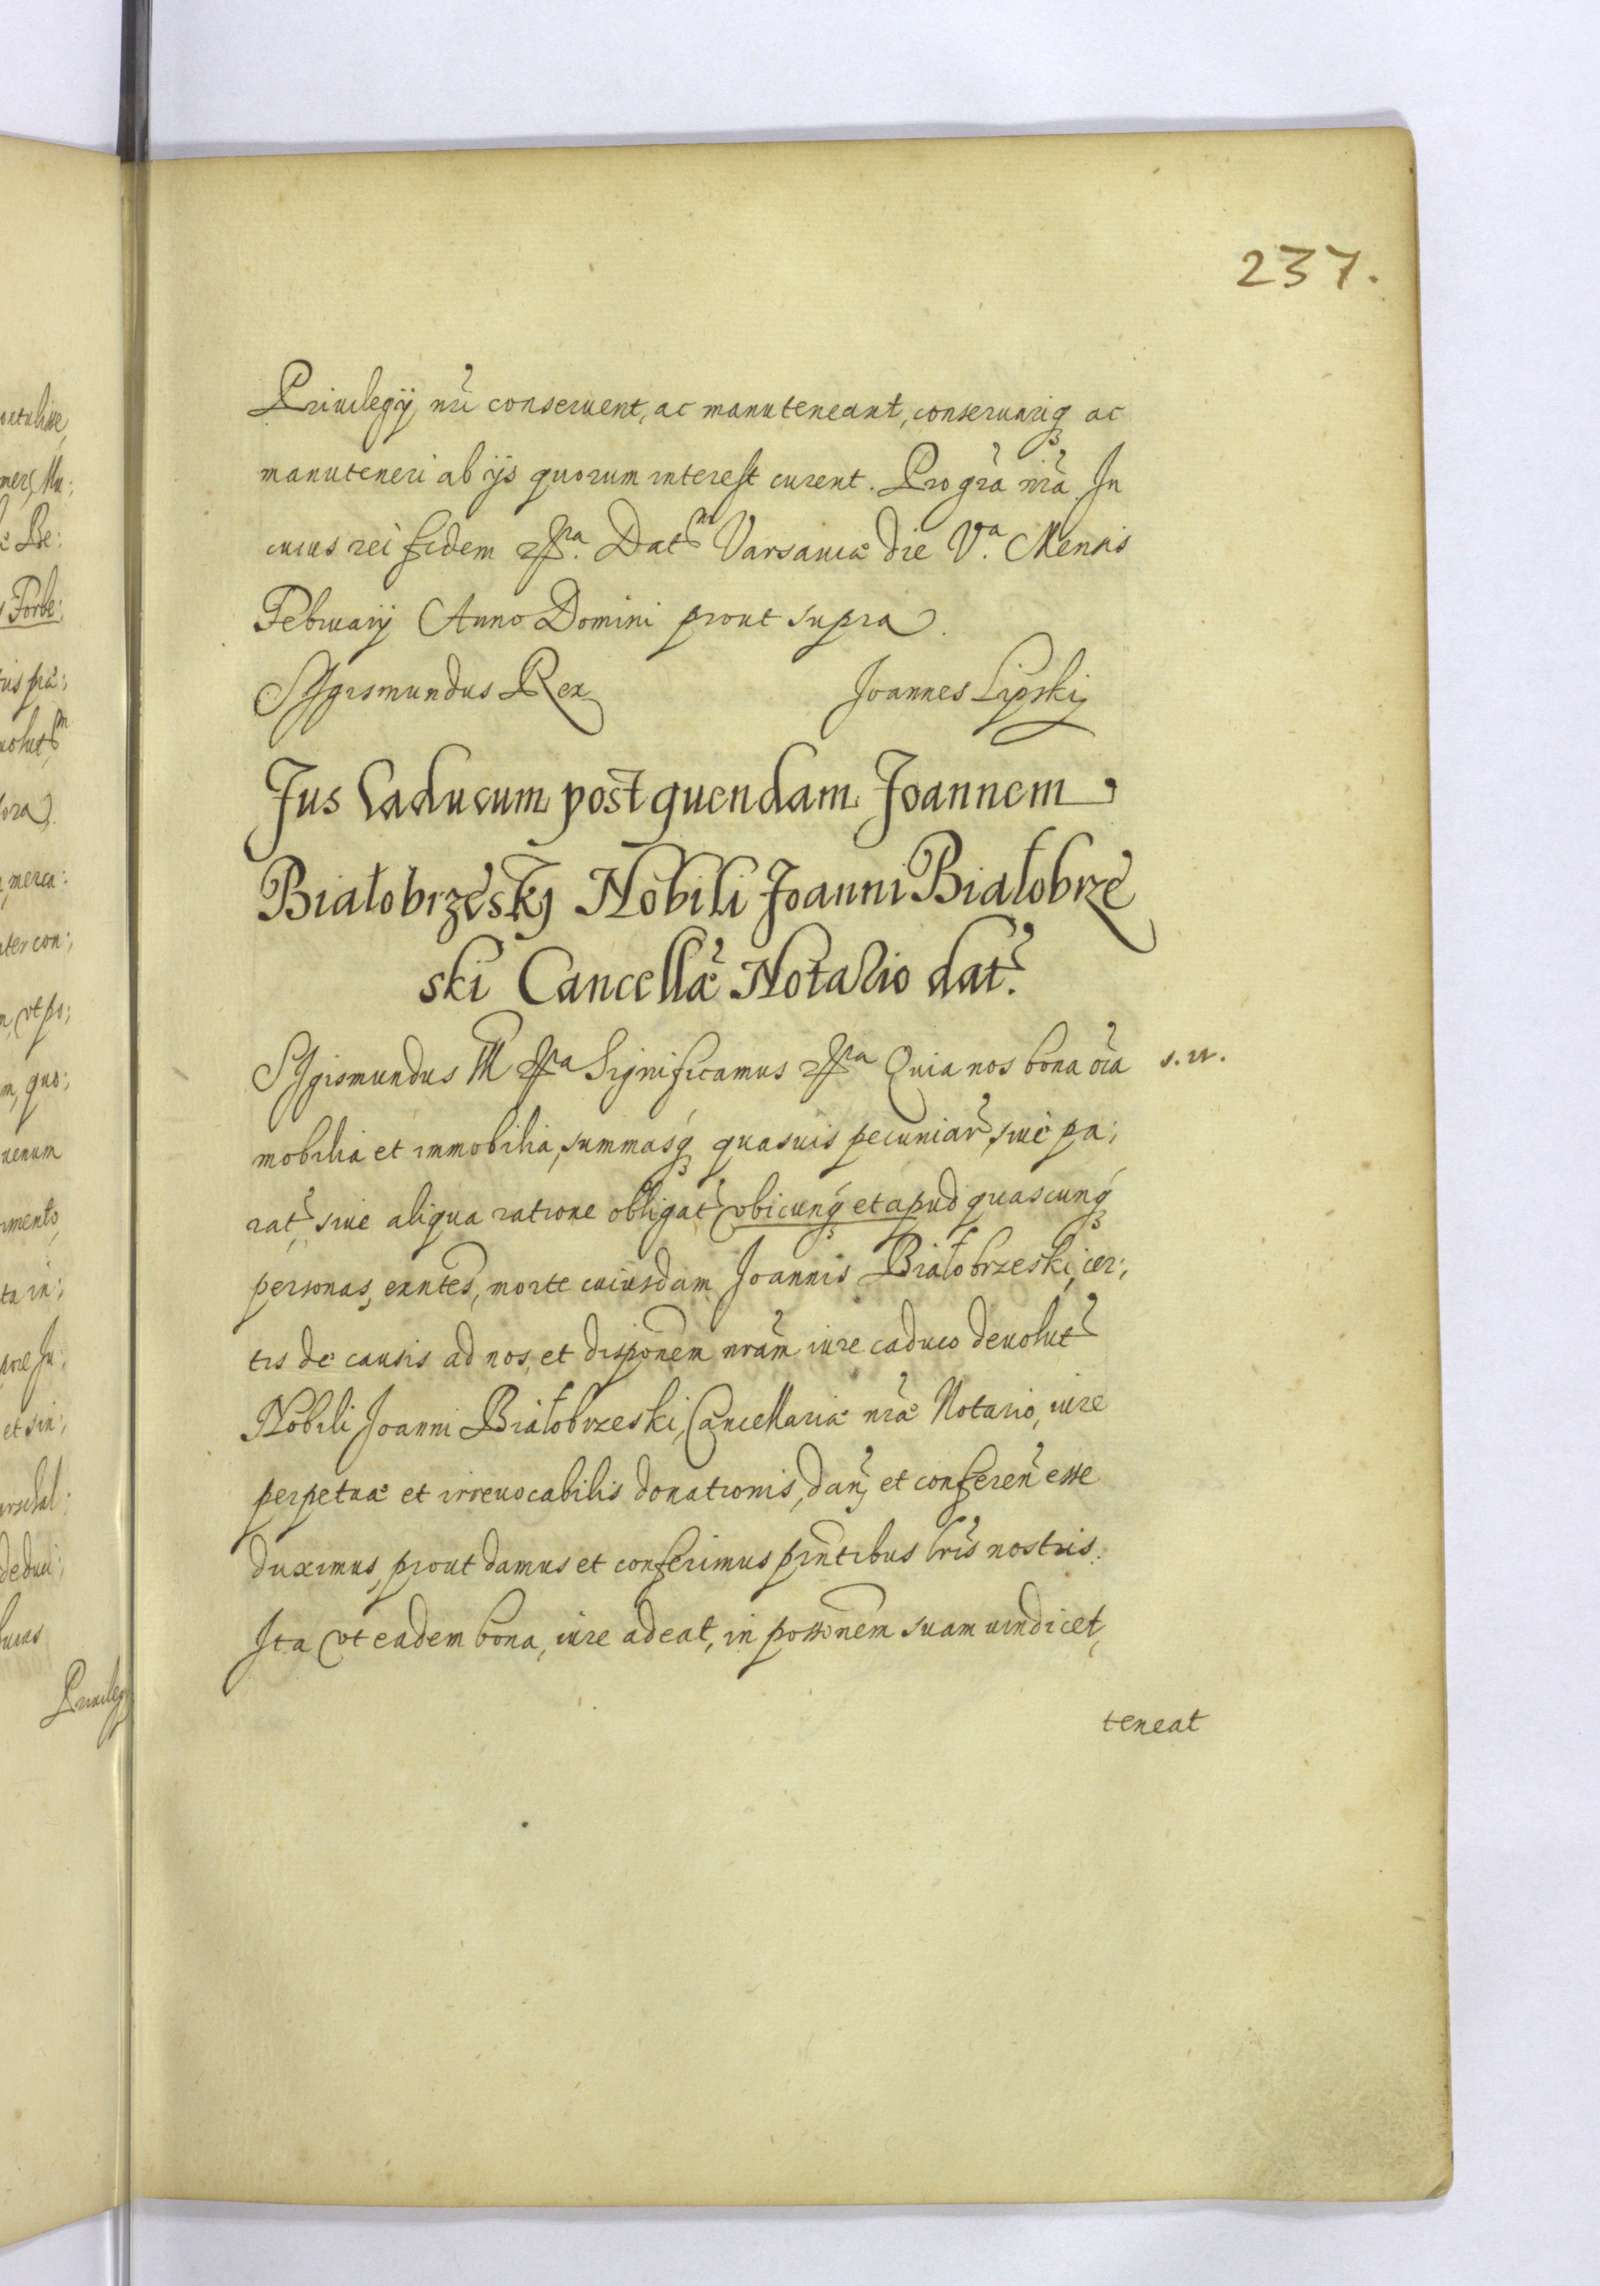 237.
Priuilegij nri conseruent, ac manuteneant, conseruariq ac
manuteneri ab ijs quorum interest curent. Pro gra nra. In
cuius rei fidem Dat Varsauiæ die Va. Mensis
February Anno Domini prout supra.
Sygismundus Rex Joannes Lipskj
Jus Caducum post quendam Joannem
Białobrzeskj Nobili Joanni Białobrze
ski Cancellæ Notario dat.
Sygismundus III Significamus Quia nos bona oia s. n.
mobilia et immobilia, summasq quasuis pecuniar, siue pa;
rat, siue aliqua ratione obligat vbicunq et apud quascunq
personas, exntes, morte cuiusdam Joannis Białobrzeski, cer;
tis de causis ad nos, et disponem nram iure caduco deuolut
Nobili Joanni Białobrzeski, Cancellariæ nræ Notario, iure
perpetuæ et irreuocabilis donationis, dan, et conferen esse
duximus, prout damus et conferimus pntibus lris nostris.
Ita vt eadem bona, iure adeat, in possonem suam uindicet,
teneat